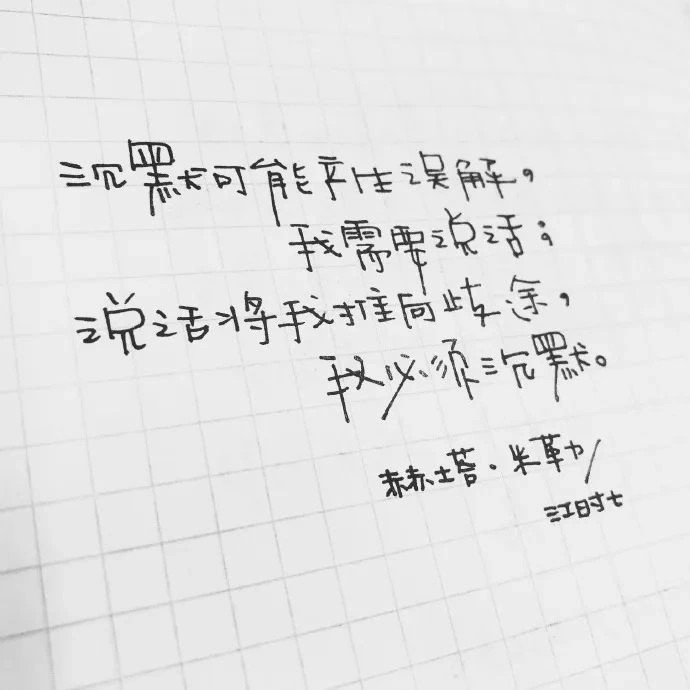 沉默可能产生误解，
我需要说话；
说话将我推向歧途，
我必须沉默。
赫塔·米勒/
江时七